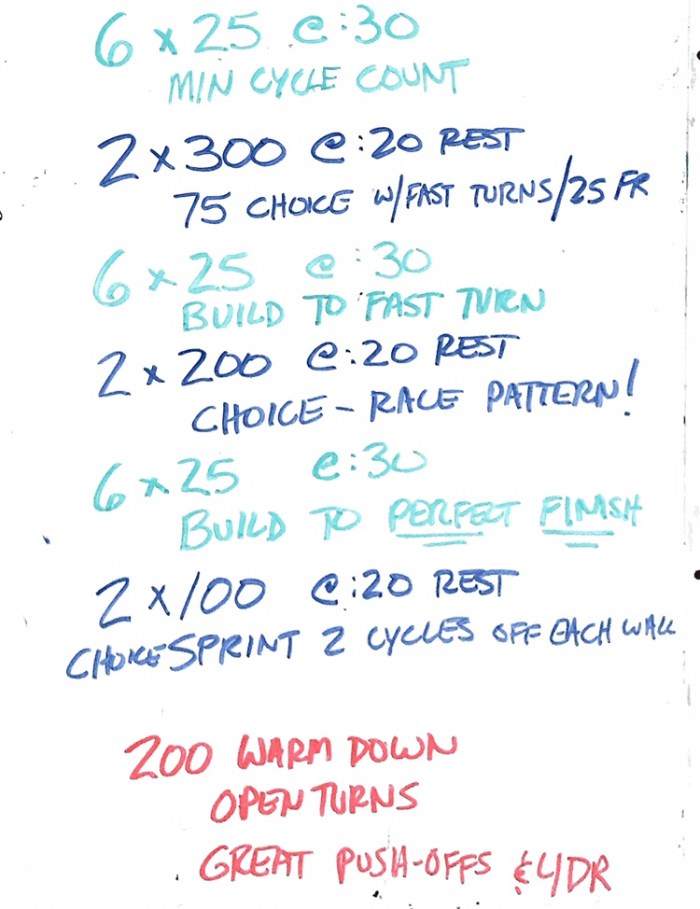 6 x 25 @ :30
MIN CYCLE COUNT
2 x 300 @ :20 REST
75 CHOICE W/FAST TURNS/25 FR
6 x 25 @ :30
BUILD TO FAST TURN
2 x 200 @ :20 REST
CHOICE - RACE PATTERN!
6 x 25 @ :30
BUILD TO PERFECT FINISH
2 x 100 @ :20 REST
CHOICE SPRINT 2 CYCLES OFF EACH WALL
200 WARM DOWN
OPEN TURNS
GREAT PUSH-OFFS & 4/DR